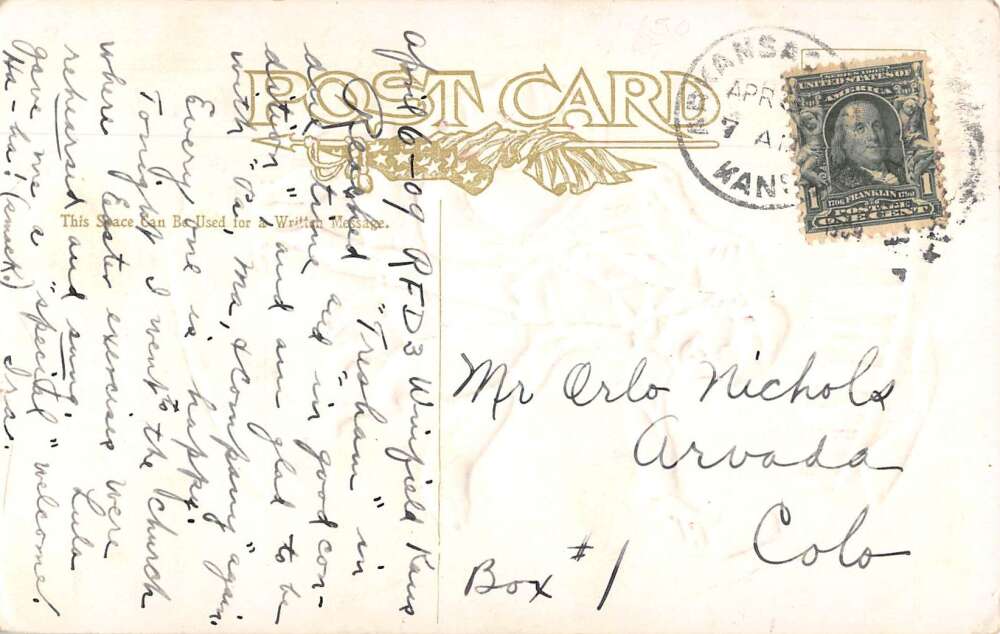 POST CARD
This Space Can Be Used for a Written Message.
April 6-09 RFD3 Winfield Kans
Reached "Tresham" in
due time and in good con-
dition and am glad to be
with "Pa, Ma, & Company" again.
Every one is happy.
Tonight I went to the church
where Easter exercises were
rehearsed and sung. Lula
gave me a "special" welcome!
Ha-ha! (smack.) Ira.
ARKANSAS
APR
7 A
KANS
SERIES 1902
UNITED STATES OF
AMERICA
1706 FRANKLIN 1790
POSTAGE
1 ONE CENT 1
Mr Orlo Nichols
Arvada
Colo
Box #1